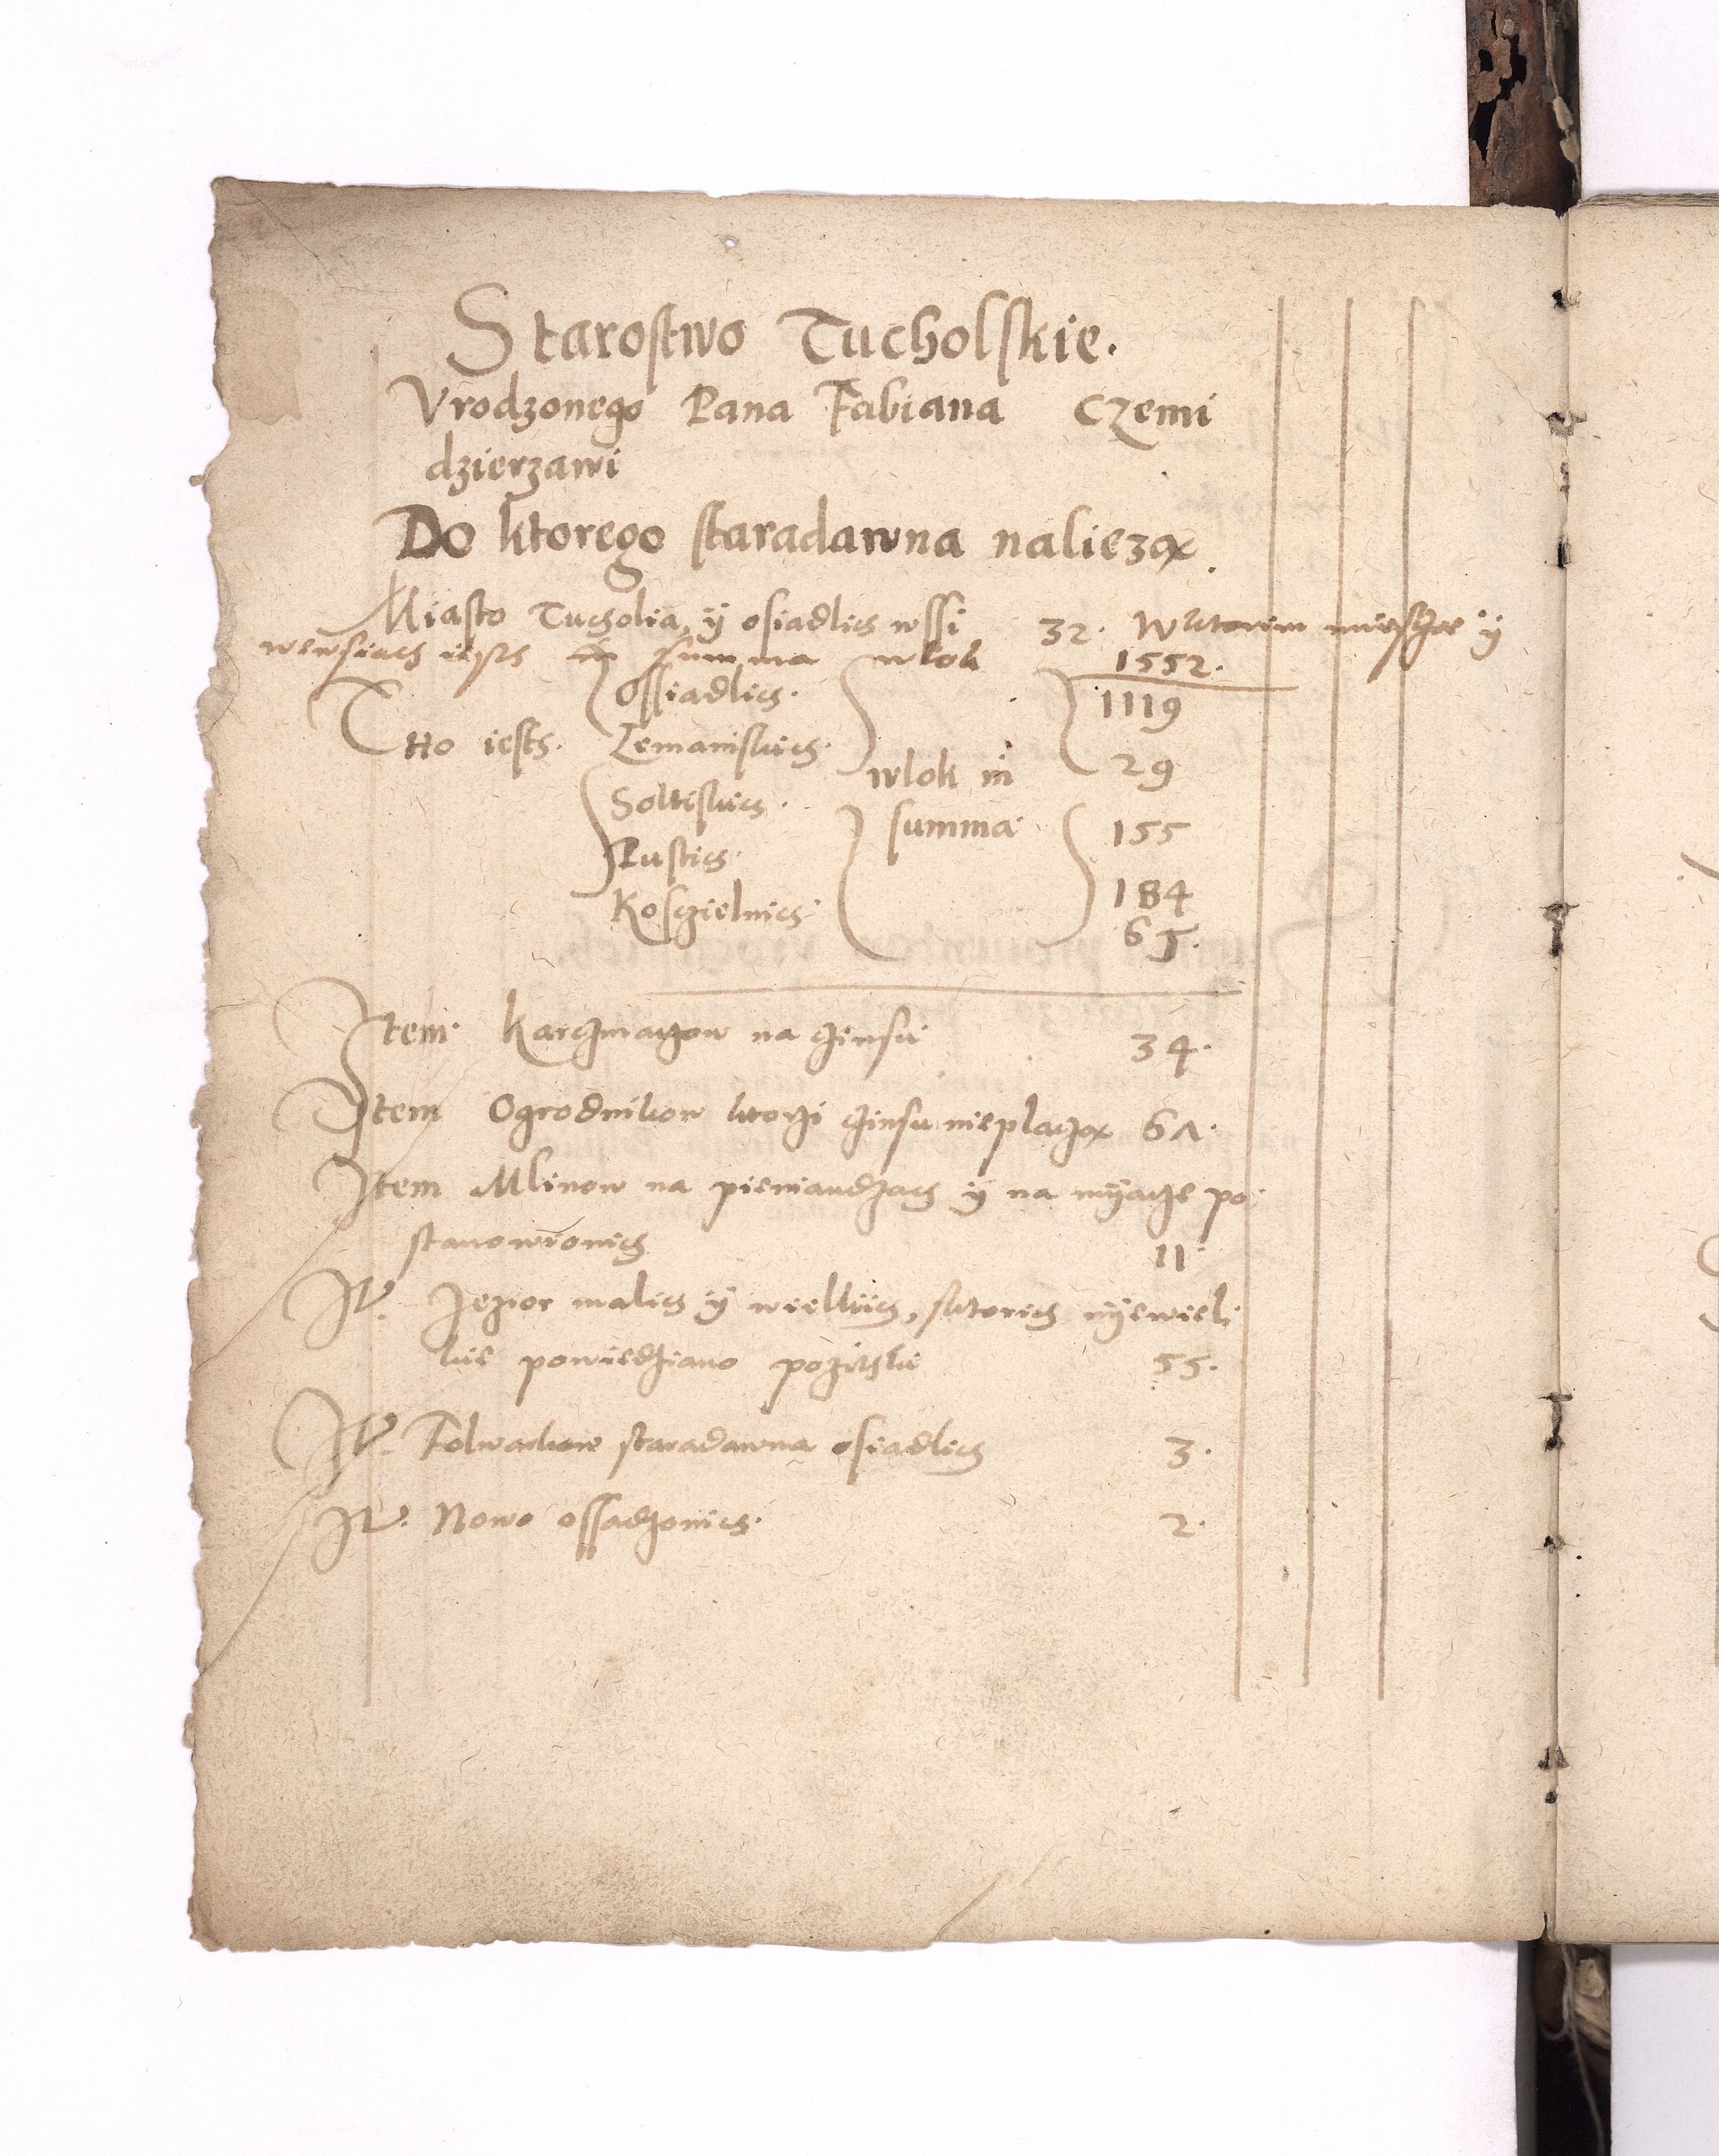 Starostwo Tucholskie.
Vrodzonego Pana Fabiana Czemi
dzierzawi
Do ktorego staradawna naliezą.
Miasto Tucholia, ÿ osiadlich wssi 32. Wktorim miesczie ÿ
wewsiach iesth in summa wlok 1552.
Ossiadlich. 1119
Tto iesth. Lemanskich. wlok in 29
Soltiskich. summa 155
Pustich. 184
Kosczielnich. 65.
Item. karczmarzow na czinsu 34.
Item Ogrodnikow ktorzi czinsu nieplaczą 61.
Item Mlinow na pieniandzach ÿ na myarze po
stanowionich 11.
It. Jezior malich ÿ wielkich, sktorich nÿewiel
kie powiedziano pozitki 55.
It. Folwarkow staradawna osiadlich 3.
It. Nowo ossadzonich. 2.